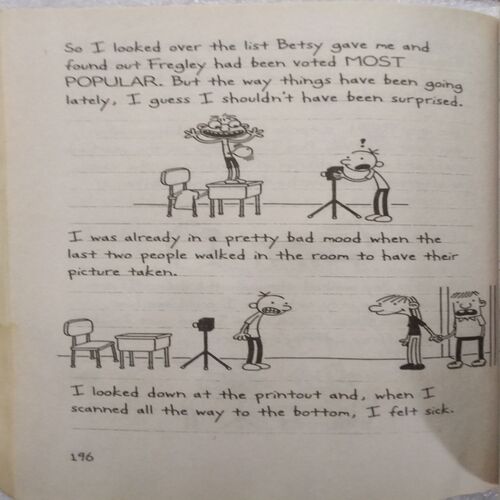 So I looked over the list Betsy gave me and
found out Fregley had been voted MOST
POPULAR. But the way things have been going
lately, I guess I shouldn't have been surprised.
!
I was already in a pretty bad mood when the
last two people walked in the room to have their
picture taken.
I looked down at the printout and, when I
scanned all the way to the bottom, I felt sick.
196